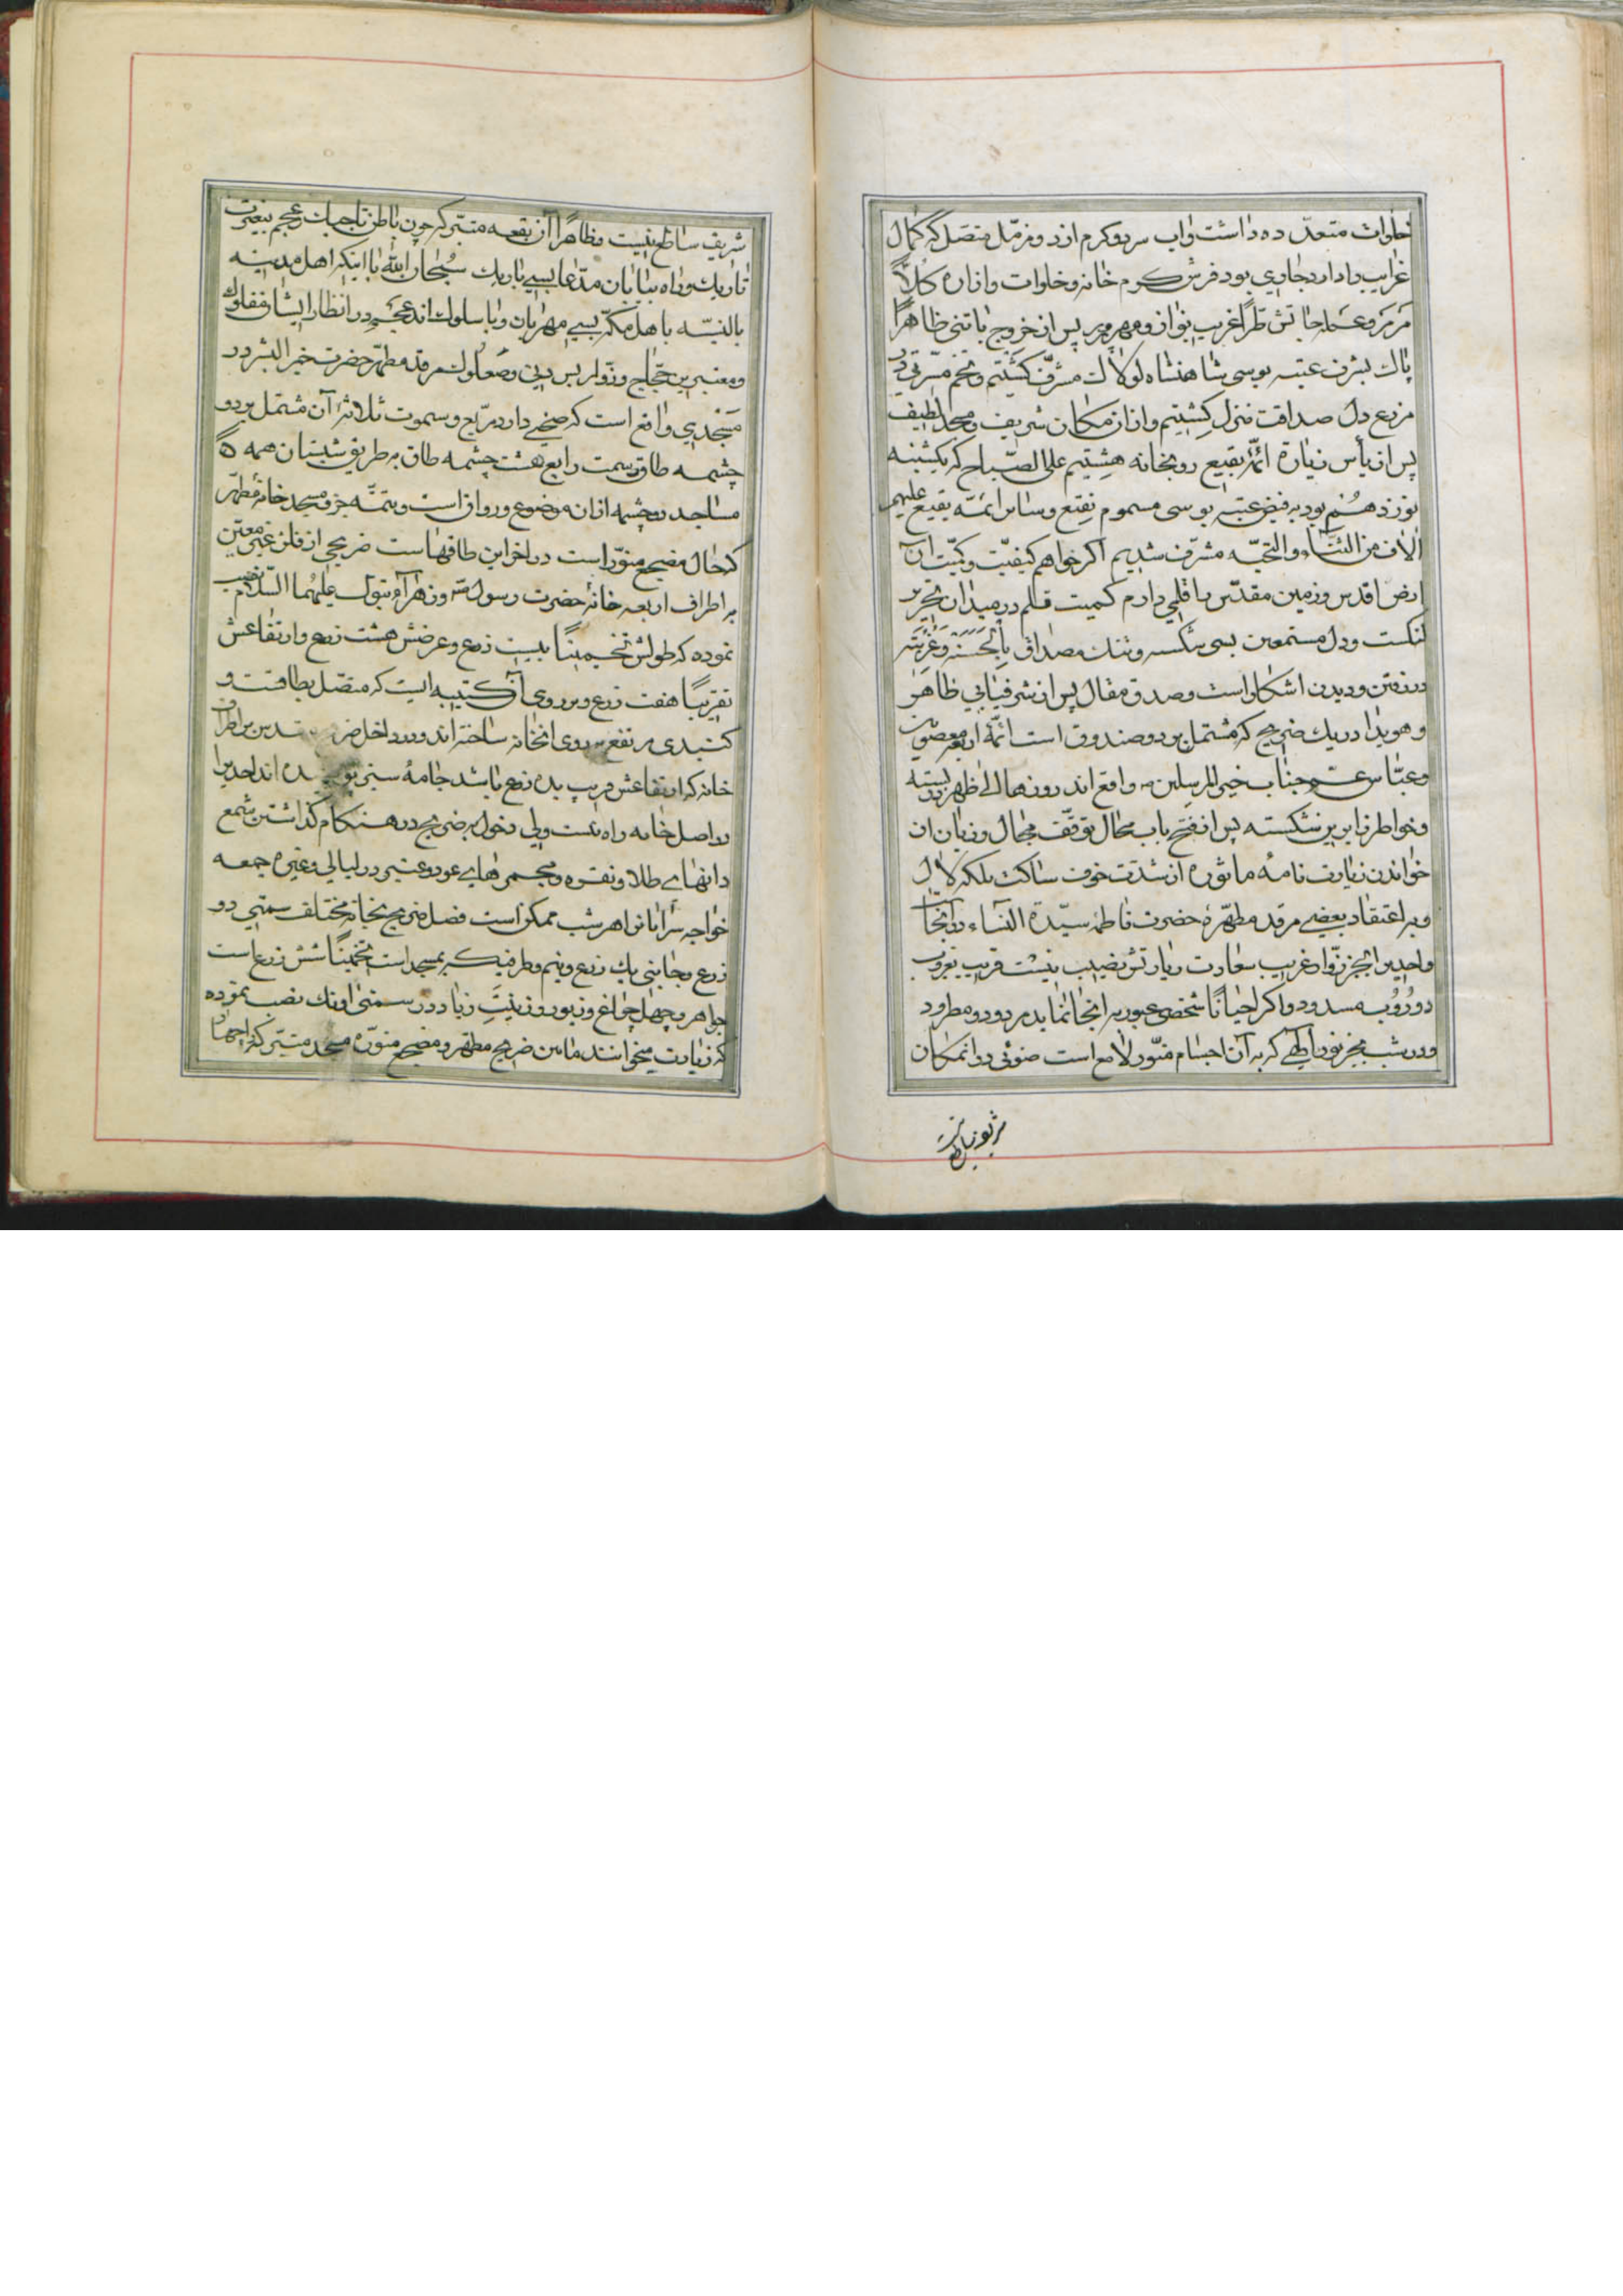 خلوات متعدّده داشت واب سرد و کرم از دو مزمّل متصل که کمال
غرایب را دارد جاری بود فرش کرم خانه و خلوات و ازاره کلاً
مرمر و عمله جاتش طرّاً غریب نواز و مهرور پس از خروج با تنی ظاهراً
پاك بشرف عتبه بوسی شاهنشاه لولاك مشرّف کشتیم و تخم مسرّتی در
مزرع دل صداقت منزل کشتیم و از ان مکان شریف و محل لطیف
پس از یأس زیارة ائمّهٔ بقیع رو بخانه هشتیم علی الصّباح که یکشنبه
نوزدهم بود به فیض عتبه بوسی مسموم نقیع و سایر ائمّه بقیع علیهم
الاف من الثناء والتحیّه مشرّف شدیم اکر خواهم کیفیّت و کمیّت ان
ارض اقدس و زمین مقدّس را قلمی دارم کمیت قلم در میدان تحریر
لنکست و دل مستمعین بسی شکسته و تنك مصداق
در رفتن و دیدن اشکار است و صدق مقال پس از شرفیابی ظاهر
و هویدا در یك ضریح که مشتمل بر دو صندوق است ائمّهٔ اربعه معصومین
و عبّاس عمّ جناب خیر المرسلین واقع اند روزها الی ظهر در بسته
و خواطر زایرین شکسته پس از فتح باب محال توقّف مجال و زبان از
خواندن زیارت نامهٔ ماثوره از شدّت خوف ساکت بلکه لال
و بر اعتقاد بعضی مرقد مطهّرهٔ حضرت فاطمه سیّدة النساء در آنجا
واحدیرا بجز زوّار غریب سعادت زیارتش نصیب نیست قریب بغروب
در و روبه مسدود و اکر احیاناً شخصی عبور بر انجا نماید مردود و مطرود
و در شب بجز نور الهی که بر آن اجسام منوّر لامع است ضوئی در انمکان
شریف ساطع نیست و ظاهراً آن بقعه متبرّکه چون باطن تاجیك و عجم بیغیرت
تاریك و راه بیابان مدّعا بسی باریك سُبحان الله با اینکه اهل مدینه
بالنسبه باهل مکّه بسی مهربان و با سلوك اند عجم در انظار ایشان مفلوك
و معتبرین حجّاج و زوّار بس دنی و صعلوك مرقد مطهّر حضرت خیر البشر در
مسجدی واقع است که صحنی دارد مربّع و سموت ثلاثهٔ آن مشتمل بر دو
چشمه طاق و سمت رابع هشت چشمه طاق به طریق شبستان همه
مساجد دو چشمه از ان موضوع و رواق است و تتمّه جزو مسجد خانهٔ مطهّر
که حال مضجع منوّر است در اخر این طاقهاست ضریحی از فلز غیر معیّن
بر اطراف اربعه خانهٔ حضرت رسول و زهرآء بتول علیهما السّلام نصب
نموده که طولش تخمیناً بیست ذرع و عرضش هشت ذرع و ارتفاعش
تقریباً هفت ذرع و بر روی آن کتیبه ایست که متصل بطاقست و
کنبدی مرتفع بر روی انخانه ساخته اند و در داخل بر اطراف
خانه که ارتفاعش قریب بده ذرع باشد جامهٔ سبزی اند احدیرا
در اصل خانه راه نیست ولی دخول بر ضریح در هنکام کذاشتن شمع
دانهای طلا و نقره و مجمرهای عود و عنبر در لیالی و غیره جمعه
خواجه سرایانرا هر شب ممکن است فصل ضریح بخانه مختلف سمتی دو
ذرع و جانبی یك ذرع و نیم و طرفیکه بمسجد است تخمیناً شش ذرع است
جواهر و چهل چراغ و زیور و زینتِ زیاد در سمتی اونك نصب نموده
که زیارت میخوانند مابین ضریح مطهّر و مضجع منوّره مسجد متبرّکه